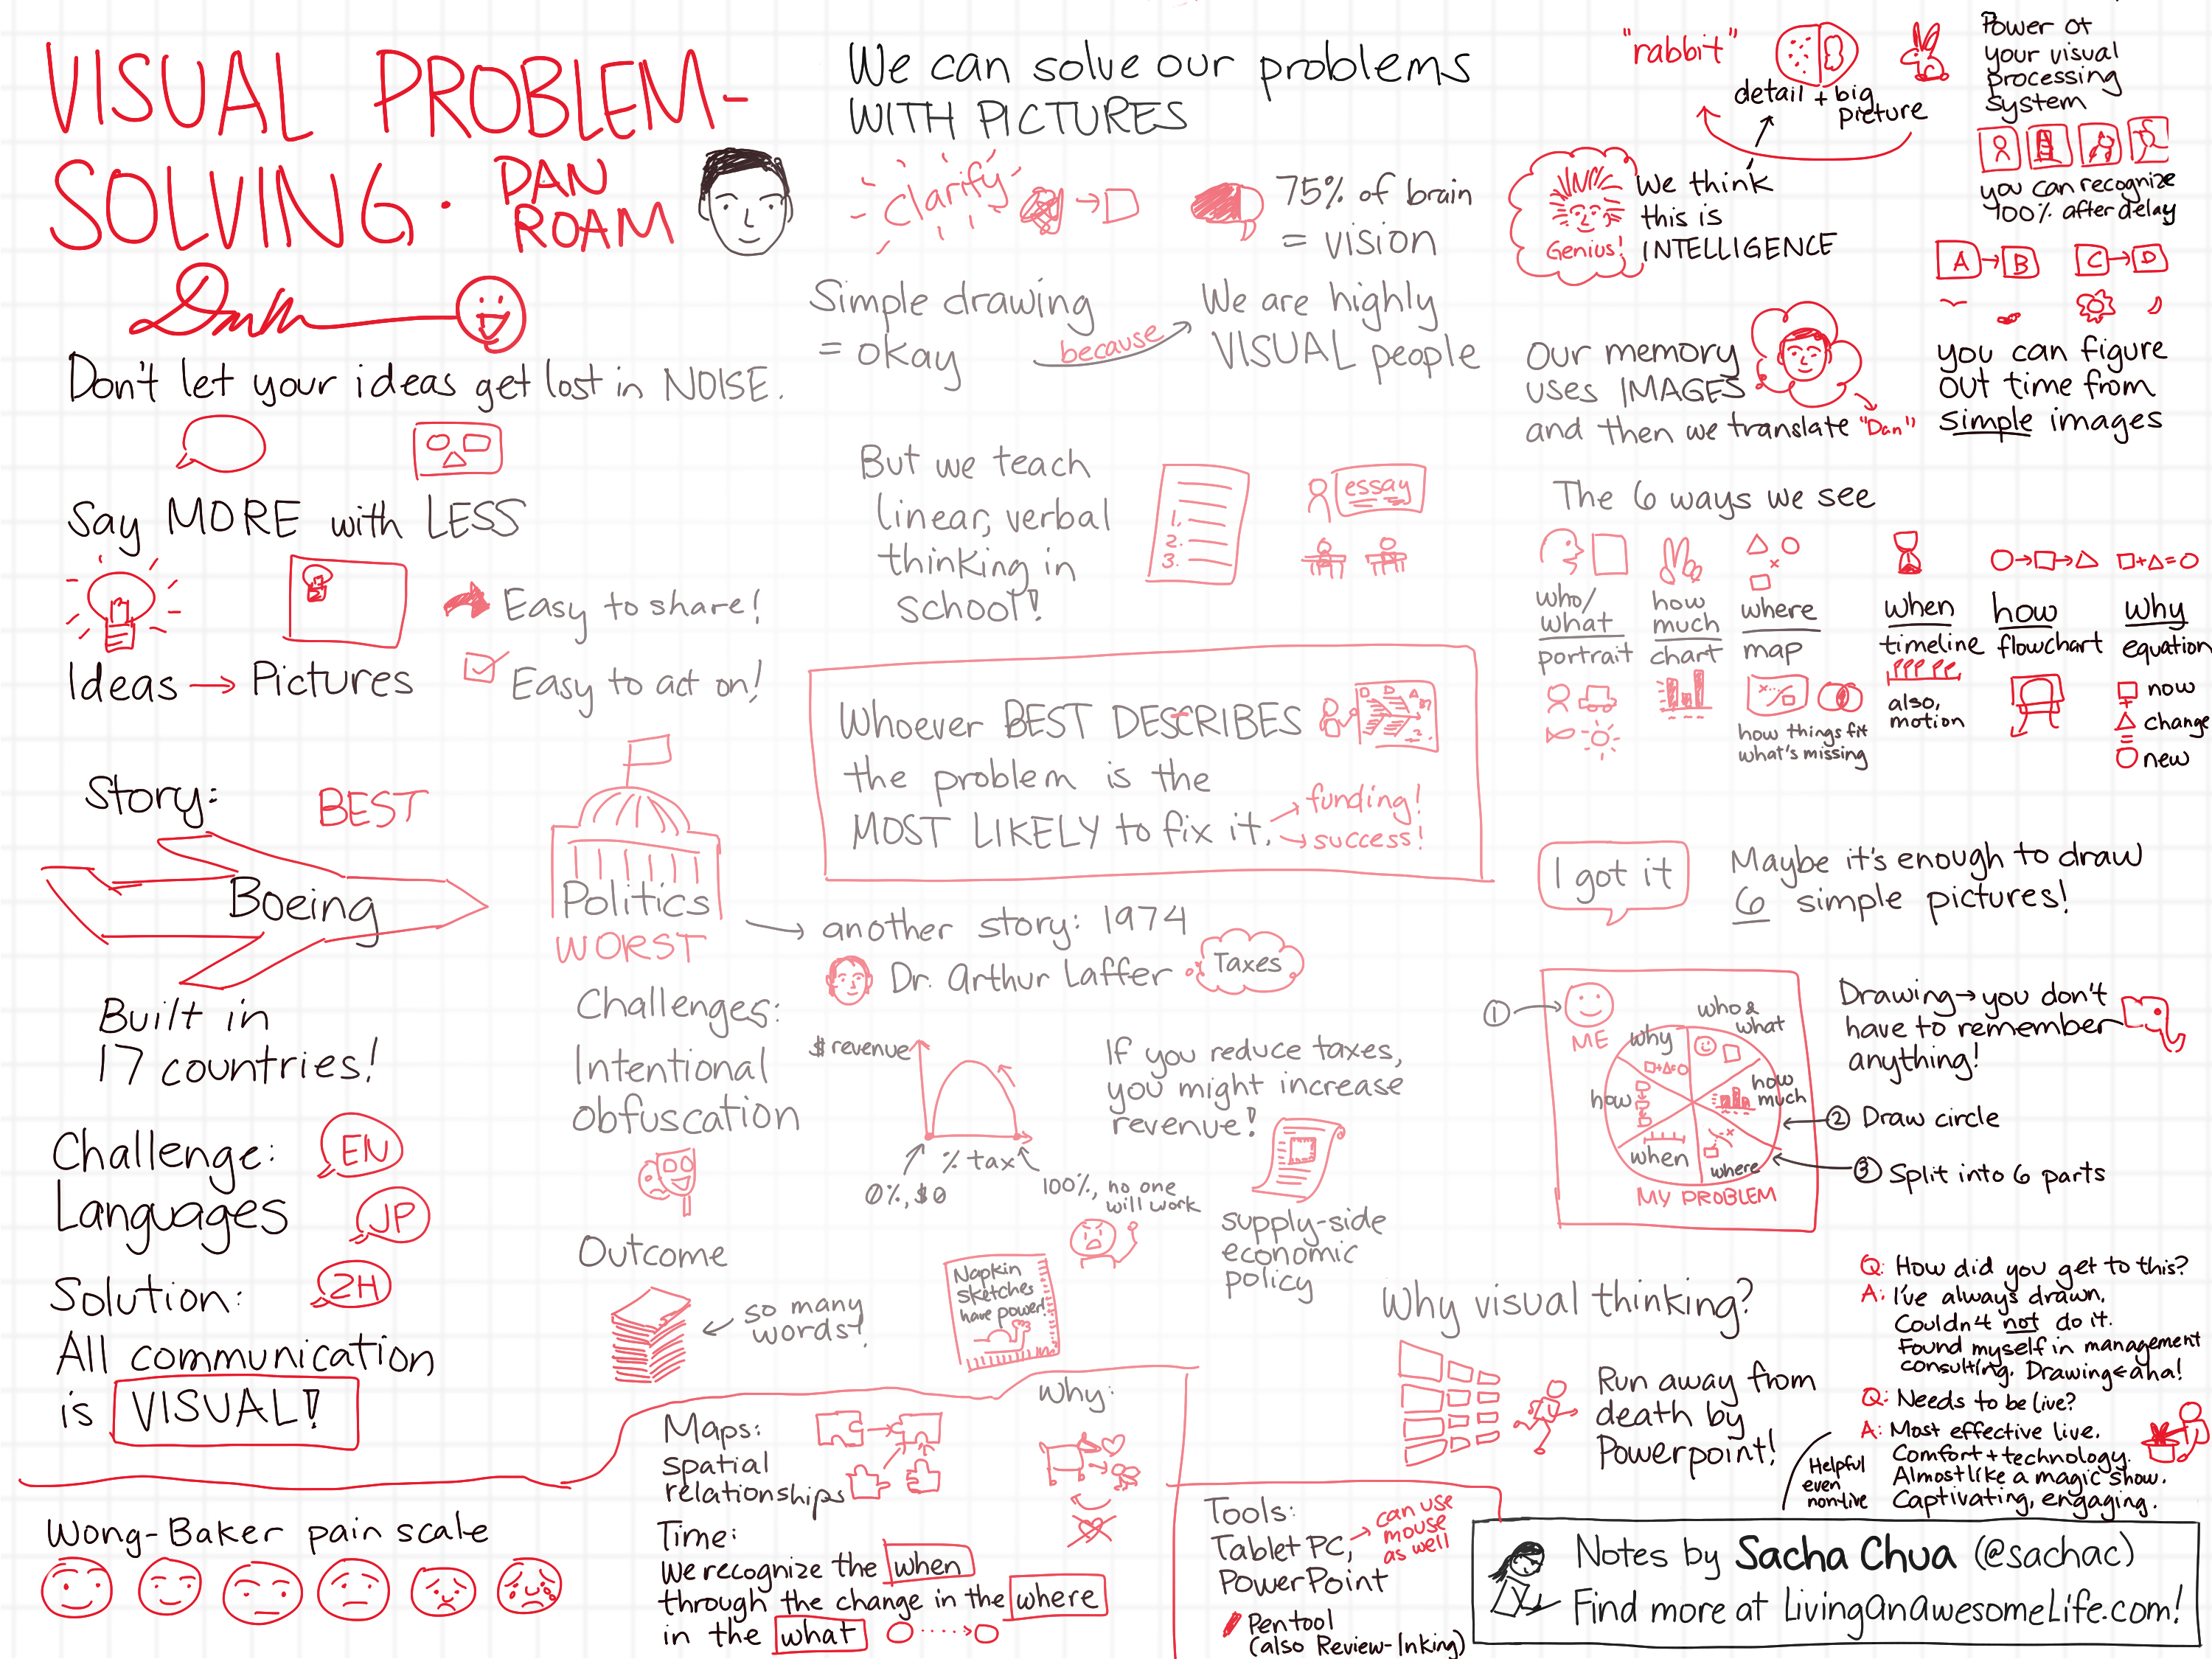 VISUAL PROBLEM-
SOLVING · DAN
ROAM
Don't let your ideas get lost in NOISE.
Say MORE with LESS
Ideas → Pictures
Easy to share!
Easy to act on!
Story:
BEST
Boeing
Built in
17 countries!
Challenge:
Languages
EN
JP
ZH
Solution:
All communication
is VISUAL!
Politics
WORST
Challenges:
Intentional
obfuscation
Outcome
so many
words!
We can solve our problems
WITH PICTURES
clarify
75% of brain
= vision
Simple drawing
= okay
because
We are highly
VISUAL people
But we teach
linear, verbal
thinking in
school!
1.
2.
3.
essay
Whoever BEST DESCRIBES
the problem is the
MOST LIKELY to fix it.
funding!
success!
another story: 1974
Dr. Arthur Laffer
Taxes
$ revenue
% tax
0%, $0
100%, no one
will work
If you reduce taxes,
you might increase
revenue!
supply-side
economic
policy
Napkin
sketches
have power!
"rabbit"
detail + big
picture
Genius!
We think
this is
INTELLIGENCE
Power of
your visual
processing
system
you can recognize
100% after delay
A → B
C → D
you can figure
out time from
simple images
Our memory
uses IMAGES
and then we translate "Dan"
The 6 ways we see
who/
what
portrait
how
much
chart
where
map
how things fit
what's missing
when
timeline
also,
motion
how
flowchart
why
equation
now
change
new
I got it
Maybe it's enough to draw
6 simple pictures!
1
ME
who &
what
how
much
where
when
how
why
MY PROBLEM
Drawing → you don't
have to remember
anything!
2 Draw circle
3 Split into 6 parts
Why visual thinking?
Run away from
death by
Powerpoint!
Q: How did you get to this?
A: I've always drawn.
Couldn't not do it.
Found myself in management
consulting. Drawing ← aha!
Q: Needs to be live?
A: Most effective live.
Comfort + technology.
Almost like a magic show.
Captivating, engaging.
Helpful
even
non-live
Wong-Baker pain scale
Maps:
spatial
relationships
Why:
Time:
We recognize the when
through the change in the where
in the what
Tools:
Tablet PC,
PowerPoint
can use
mouse
as well
Pen tool
(also Review-Inking)
Notes by Sacha Chua (@sachac)
Find more at LivingAnAwesomeLife.com!